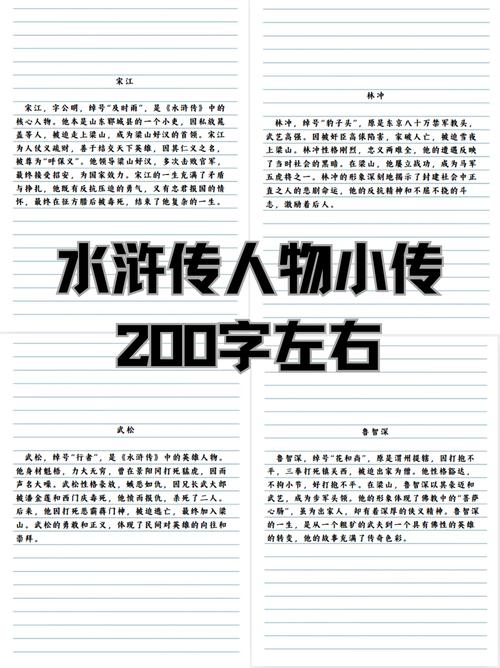 宋江
宋江，字公明，绰号“及时雨”，是《水浒传》中的
核心人物。他本是山东郓城县的一个小吏，因私放晁
盖等人，被迫走上梁山，成为梁山好汉的首领。宋江
为人仗义疏财，善于结交天下英雄，因其仁义之名，
被尊为“呼保义”。他领导梁山好汉，多次击败官军，
最终接受招安，为国家效力。宋江的一生充满了矛盾
与挣扎，他既有反抗压迫的勇气，又有忠君报国的情
怀，最终在征方腊后被毒死，结束了他复杂的一生。
林冲
林冲，绰号“豹子头”，原是东京八十万禁军教头，
武艺高强。因被奸臣高俅陷害，家破人亡，被迫雪夜
上梁山。林冲性格刚烈，忠义两难全，他的遭遇反映
了当时社会的黑暗。在梁山，他屡立战功，成为马军
五虎将之一。林冲的形象深刻地揭示了封建社会中正
直之人的悲剧命运，他的反抗精神和不屈不挠的斗
志，激励着后人。
水浒传人物小传
200字左右
武松
武松，绰号“行者”，是《水浒传》中的英雄人物。
他身材魁梧，力大无穷，曾在景阳冈打死猛虎，因而
声名大噪。武松性格豪放，嫉恶如仇，因兄长武大郎
被潘金莲和西门庆毒死，他愤而报仇，杀死了二人。
后来，他因打死恶霸蒋门神，被迫逃亡，最终加入梁
山。武松的勇敢和正义，体现了民间对英雄的向往和
崇拜。
鲁智深
鲁智深，绰号“花和尚”，原是渭州提辖，因打抱不
平，三拳打死镇关西，被迫出家为僧。他性格豁达，
不拘小节，好打抱不平。在梁山，鲁智深以其豪迈和
武艺，成为步军头领。他的形象体现了佛教中的“菩萨
心肠”，虽为出家人，却有着深厚的侠义精神。鲁智深
的一生，是从一个粗犷的武夫到一个具有佛性的英雄
的转变，他的故事充满了传奇色彩。